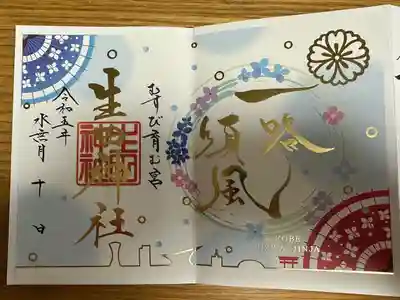 一路順風
KOBE
JINJA
むすび育む宮
生田神社
令和五年
水無月 十日